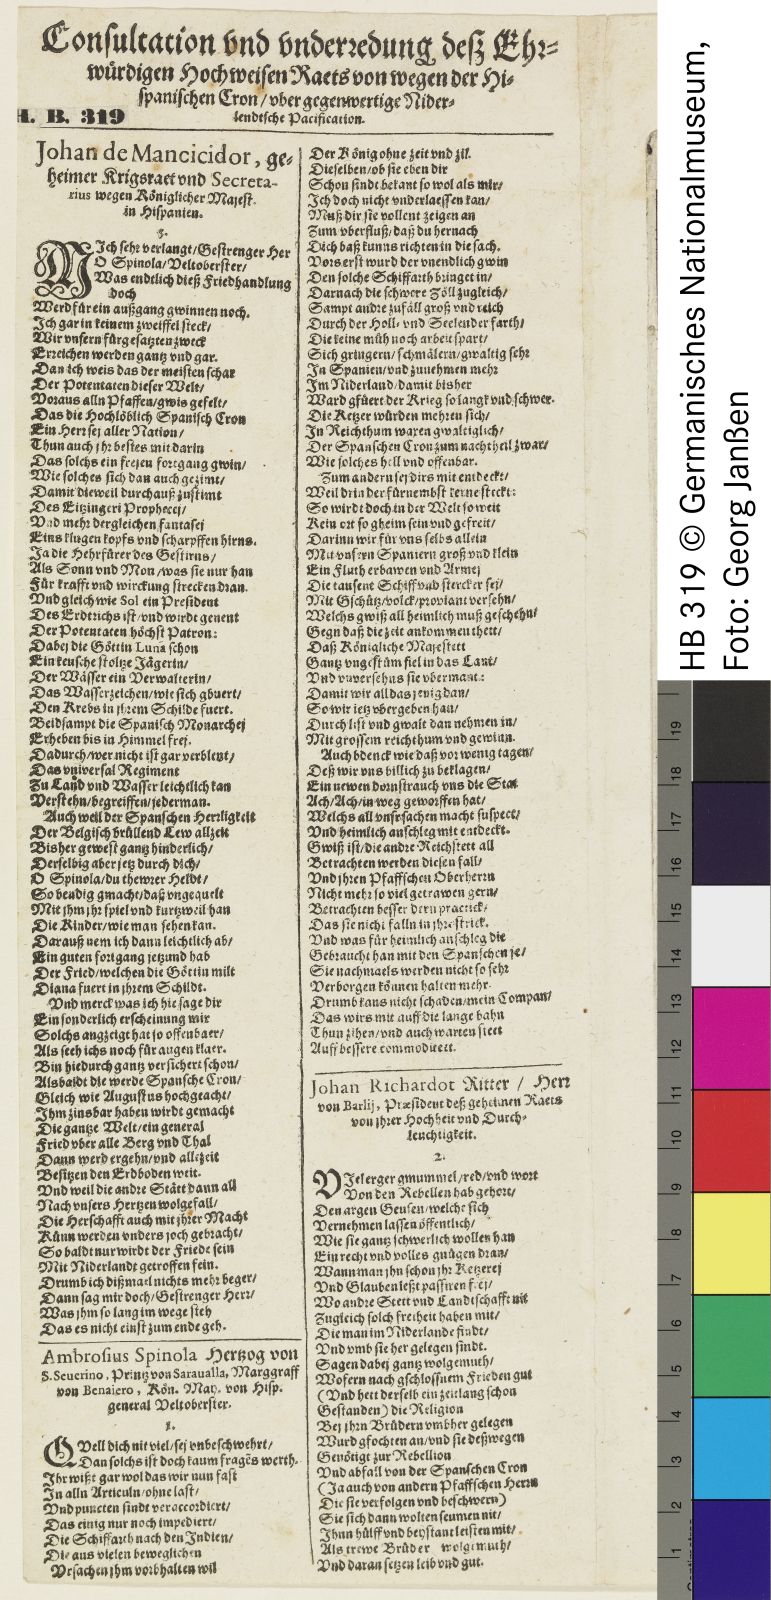 Consultation vnd vnderredung deß Ehr⸗
würdigen Hochweisen Raets von wegen der Hi⸗
spanischen Cron / vber gegenwertige Nider⸗
lendtsche Pacification.
H. B. 319
Johan de Mancicidor, ge⸗
heimer Krigsraet vnd Secreta-
rius wegen Königlicher Majest.
in Hispanien.
3.
MIch sehr verlangt / Gestrenger Her
O Spinola / Veltoberster /
Was endtlich dieß Friedhandlung
doch
Werd für ein außgang gwinnen noch.
Ich gar in keinem zweiffel steck /
Wir vnsern fürgesatzten zweck
Erreichen werden gantz vnd gar.
Dan ich weis das der meisten schar
Der Potentaten dieser Welt /
Voraus alln Pfaffen / gwis gefelt /
Das die Hochlöblich Spanisch Cron
Ein Herr sej aller Nation /
Thun auch jhr bestes mit darin
Das solchs ein frejen fortgang gwin /
Wie solches sich dan auch gezimt /
Damit dieweil durchauß zustimt
Des Eitzingeri Prophecej /
Vnd mehr dergleichen fantasej
Eins klugen kopfs vnd scharpffen hirns.
Ja die Hehrfürer des Gestirns /
Als Sonn vnd Mon / was sie nur han
Für krafft vnd wirckung strecken dran.
Vnd gleich wie Sol ein President
Des Erdtrichs ist / vnd wirdt genent
Der Potentaten höchst Patron:
Dabej die Göttin Luna schon
Ein keusche stoltze Jägerin /
Der Wässer ein Verwalterin /
Das Wasserzeichen / wie sich gbuert /
Den Krebs in jhrem Schilde fuert.
Beidsampt die Spanisch Monarchej
Erheben bis in Himmel frej.
Dadurch / wer nicht ist gar verblent /
Das vniversal Regiment
Zu Land vnd Wasser leichtlich kan
Verstehn / begreiffen / jederman.
Auch weil der Spanschen Herrligkeit
Der Belgisch brüllend Lew allzeit
Bisher gewest gantz hinderlich /
Derselbig aber jetz durch dich /
O Spinola / du thewrer Heldt /
So bendig gmacht / daß vngequelt
Mit jhm jhr spiel vnd kurtzweil han
Die Kinder / wie man sehen kan.
Darauß nem ich dann leichtlich ab /
Ein guten fortgang jetzund hab
Der Fried / welchen die Göttin milt
Diana fuert in jhrem Schildt.
Vnd merck was ich hie sage dir
Ein sonderlich erscheinung mir
Solchs angzeigt hat so offenbaer /
Als seeh ichs noch für augen klaer.
Bin hiedurch gantz versichert schon /
Alsbaldt die werde Spansche Cron /
Gleich wie Augustus hochgeacht /
Ihm zinsbar haben wirdt gemacht
Die gantze Welt / ein general
Fried vber alle Berg vnd Thal
Dann werd ergehn / vnd allezeit
Besitzen den Erdboden weit.
Vnd weil die andre Stätt dann all
Nach vnsers Hertzen wolgefall /
Die Herschafft auch mit jhrer Macht
Künn werden vnders joch gebracht /
So baldt nur wirdt der Friede sein
Mit Niderlandt getroffen fein.
Drumb ich dißmarl nichts mehr beger /
Dann sag mir doch / Gestrenger Herr /
Was jhm so lang im wege steh
Das es nicht einst zum ende geh.
Ambrosius Spinola Hertzog von
S. Seuerino, Printz von Saraualla, Marggraff
von Benaiero, Kön. May. von Hisp.
general Veltoberster.
1.
QVell dich nit viel / sej vnbeschwehrt /
Dan solchs ist doch kaum fragēs werth.
Ihr wißt gar wol das wir nun fast
In alln Articuln / ohne last /
Vnd puncten sindt veraccordiert /
Das einig nur noch impediert /
Die Schiffarth nach den Indien /
Die aus vielen beweglichen
Vrsachen jhm vorbhalten wil
Der König ohne zeit vnd zil.
Dieselben / ob sie eben dir
Schon sindt bekant so wol als mir /
Ich doch nicht vnderlaessen kan /
Muß dir sie vollent zeigen an
Zum vberfluß / daß du hernach
Dich baß kunns richten in die sach.
Vors erst wurd der vnendlich gwin
Den solche Schiffarth bringet in /
Darnach die schwere Zöll zugleich /
Sampt andre zufäll groß vnd reich
Durch der Holl- vnd Seelender farth /
Die keine müh noch arbeit spart /
Sich gringern / schmälern / gwaltig sehr
In Spanien / vnd zunehmen mehr
Im Niderland / damit bisher
Ward gfüert der Krieg so langk vnd schwer.
Die Ketzer würden mehren sich /
In Reichthum waren gwaltiglich /
Der Spanschen Cron zum nachtheil zwar /
Wie solches hell vnd offenbar.
Zum andern sej dirs mit entdeckt /
Weil drin der fürnembst kerne steckt:
So wirdt doch in der Welt so weit
Kein ort so gheim sein vnd gefreit /
Darinn wir für vns selbs allein
Mit vnsern Spaniern groß vnd klein
Ein Fluth erbawen vnd Armej
Die tausent Schiff vnd stercker sej /
Mit Gschütz / volck / proviant versehn /
Welchs gwiß all heimlich muß geschehn /
Gegn daß die zeit ankommen thett /
Daß Königliche Majestett
Gantz vngestüm fiel in das Lant /
Vnd vnversehns sie vbermant:
Damit wir all das jenig dan /
So wir jetz vbergeben han /
Durch list vnd gwalt dan nehmen in /
Mit grossem reichthum vnd gewinn.
Auch bdenck wie daß vor wenig tagen /
Deß wir vns billich zu beklagen /
Ein newen dornstrauch vns die Stat
Ach / Ach / in weg geworffen hat /
Welchs all vnsesachen macht suspect /
Vnd heimlich anschleg mit entdeckt.
Gwiß ist / die andre Reichstett all
Betrachten werden diesen fall /
Vnd jhren Pfaffschen Oberherrn
Nicht mehr so viel getrawen gern /
Betrachten besser dern practick /
Das sie nicht falln in jhre strick.
Vnd was für heimlich anschleg die
Gebraucht han mit den Spanschen je /
Sie nachmaels werden nicht so sehr
Verborgen können halten mehr.
Drumb kans nicht schaden / mein Compan /
Das wirs mit auff die lange bahn
Thun zihen / vnd auch warten stett
Auff bessere commoditett.
Johan Richardot Ritter / Herr
von Barlij, Præsident deß geheimen Raets
von jhrer Hochheit vnd Durch⸗
leuchtigkeit.
2.
VJel erger gmummel / red / vnd wort
Von den Rebellen hab gehort /
Den argen Geusen / welche sich
Vernehmen lassen öffentlich /
Wie sie gantz schwerlich wollen han
Ein recht vnd volles gnügen dran /
Wannman jhn schon jhr Ketzerej
Vnd Glauben leßt passiren frej /
Wo andre Stett vnd Landtschafft nit
Zugleich solch freiheit haben mit /
Die man im Niderlande findt /
Vnd vmb sie her gelegen sindt.
Sagen dabej gantz wolgemuth /
Wofern nach gschlossnem Frieden gut
(Vnd hett derselb ein zeitlang schon
Gestanden) die Religion
Bej jhrn Brüdern vmbher gelegen
Wurd gfochten an / vnd sie deßwegen
Genötigt zur Rebellion
Vnd abfall von der Spanschen Cron
(Ja auch von andern Pfaffschen Herrn
Die sie verfolgen vnd beschwern)
Sie sich dann wolten seumen nit /
Ihnn hülff vnd beystant leisten mit /
Als trewe Brüder wolgemuth /
Vnd daran setzen leib vnd gut.
HB 319 © Germanisches Nationalmuseum,
Foto: Georg Janßen
19
18
17
16
15
14
13
12
11
10
9
8
7
6
5
4
3
2
1